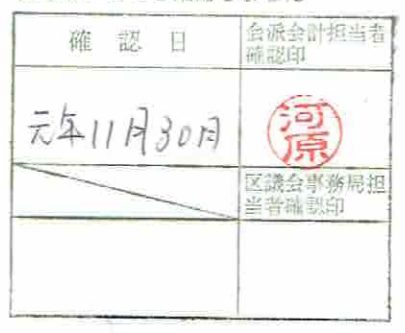 確認日
会派会計担当者
確認印
元年11月30日
河原
区議会事務局担
当者確認印